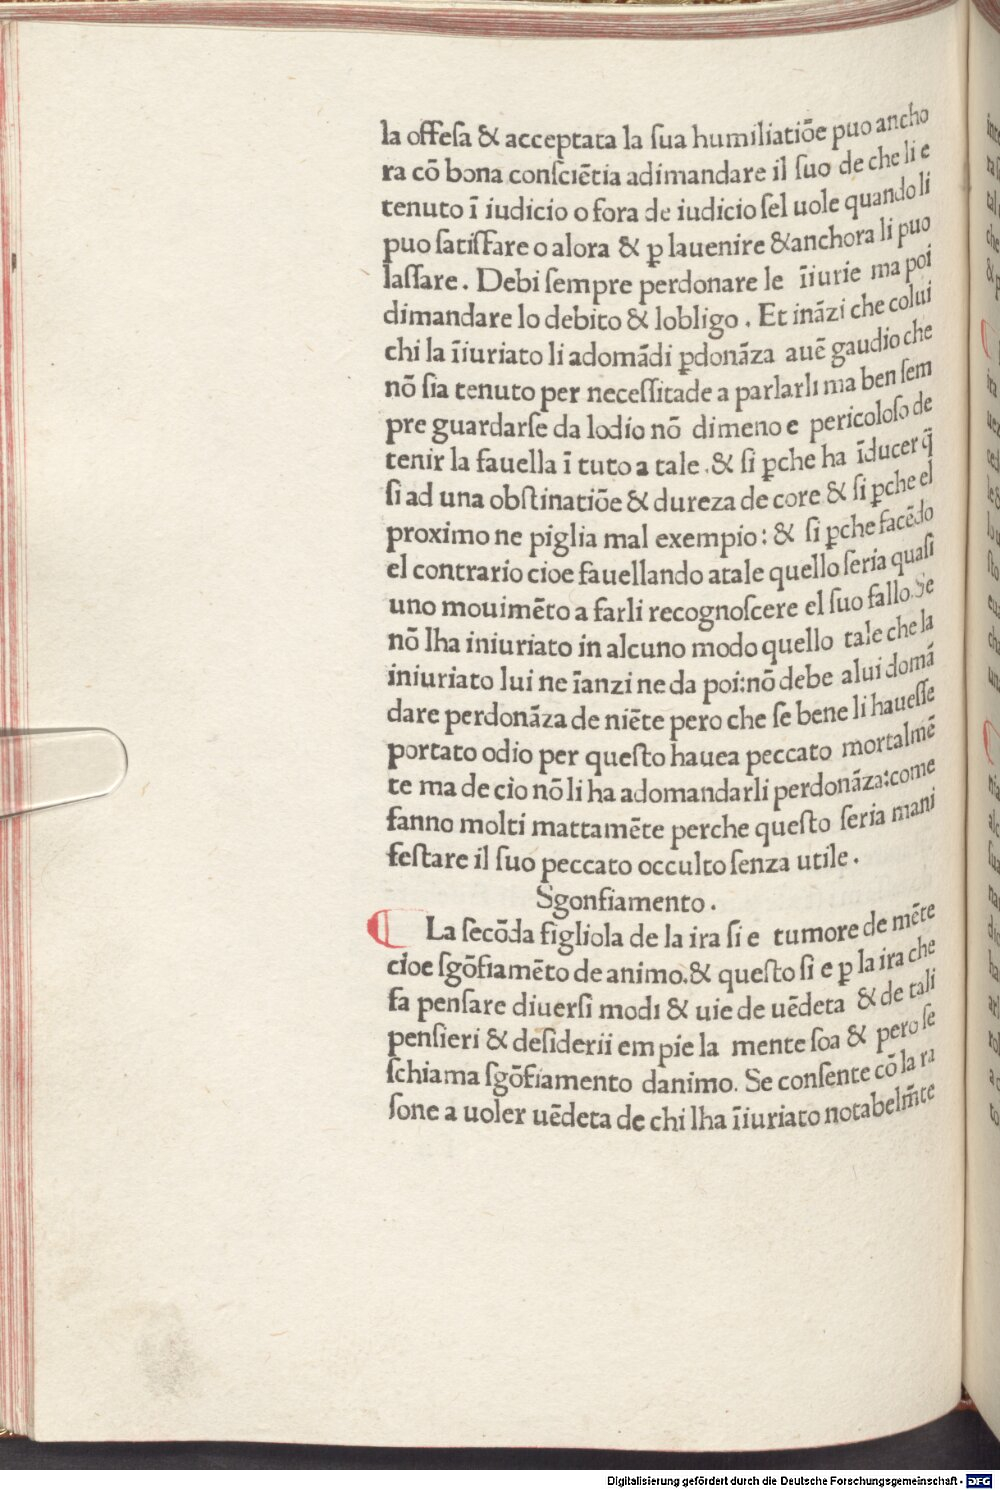 la offeſa & acceptata la ſua humiliatiõe puo ancho
ra cõ bona conſciẽtia adimandare il ſuo de che li e
tenuto ĩ iudicio o fora de iudicio ſel uole quando li
puo ſatiſfare o alora & ꝑ lauenire &anchora li puo
laſſare. Debi ſempre perdonare le ĩiurie ma poi
dimandare lo debito & lobligo. Et inãzi che colui
chi la ĩiuriato li adomãdi ꝑdonãza auẽ gaudio che
nõ ſia tenuto per neceſſitade a parlarli ma ben ſem
pre guardarſe da lodio nõ dimeno e pericoloſo de
tenir la fauella ĩ tuto a tale.& ſi ꝑche ha ĩducer q̃
ſi ad una obſtinatiõe & dureza de core & ſi ꝑche el
proximo ne piglia mal exempio: & ſi ꝑche facẽdo
el contrario cioe fauellando atale quello ſeria quaſi
uno mouimẽto a farli recognoſcere el ſuo fallo.Se
nõ lha iniuriato in alcuno modo quello tale che la
iniuriato lui ne ĩanzi ne da poi:nõ debe alui domã
dare perdonãza de niẽte pero che ſe bene li haueſſe
portato odio per queſto hauea peccato mortalmẽ
te ma de cio nõ li ha adomandarli perdonãza:come
fanno molti mattamẽte perche queſto ſeria mani
feſtare il ſuo peccato occulto ſenza utile.
Sgonfiamento.
La ſecõda figliola de la ira ſi e tumore de mẽte
cioe ſgõfiamẽto de animo.& queſto ſi e ꝑ la ira che
fa penſare diuerſi modi & uie de uẽdeta & de tali
penſieri & deſiderii empie la mente ſoa & pero ſe
ſchiama ſgõfiamento danimo. Se conſente cõ la ra
ſone a uoler uẽdeta de chi lha ĩiuriato notabelm̃te
Digitalisierung gefördert durch die Deutsche Forschungsgemeinschaft - DFG